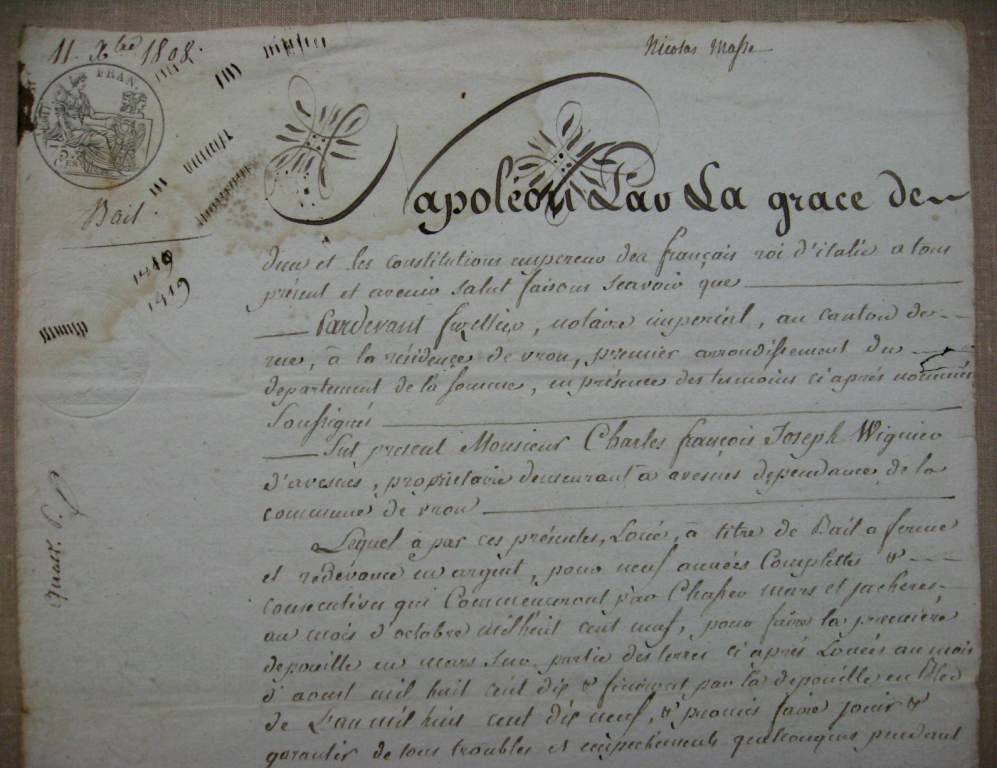 11 Xbre 1808.
Nicolas Masse
FRAN.
Bail
Napoléon Par La grace de
dieu et les constitutions empereur des français roi d'italie a tous
présent et avenir salut faisons scavoir que
Pardevant , notaire imperial, au canton de
rue, à la résidence de vron, premier arrondissement du
departement de la somme, en présence des temoins ci après nommés
Soussignés
Fut present Monsieur Charles françois Joseph Wignier
d'avesnes, propriétaire demeurant a avesnes dependance de la
commune de vron
Lequel a par ces présentes, Loué, à titre de Bail a ferme
et redevance en argent, pour neuf années Complettes &
consecutives qui Commenceront par Chasser mars et jacheres
au mois d'octobre mil huit cent neuf, pour faire la premiere
depouille en mars sur partie des terres ci après Louées au mois
d'aoust mil huit cent dix & finiront par la depouille en bled
de L'an mil huit cent dix neuf, & promis faire jouir &
garantir de tous troubles et empechements quelconques pendant